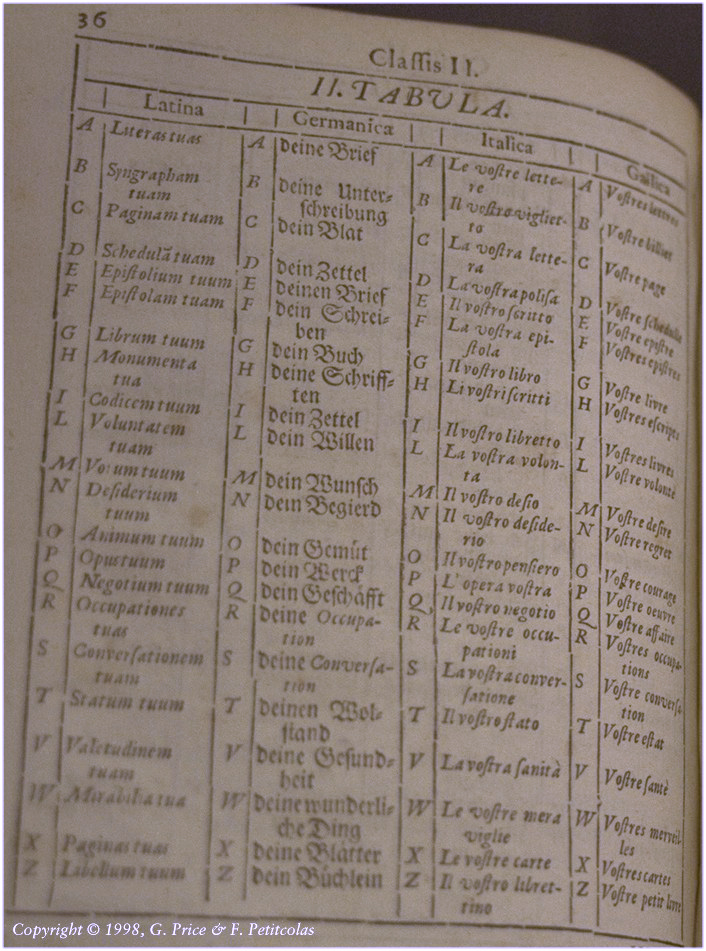 36
Claſſis II.
II. TABVLA.
Latina
A Literas tuas
B Syngrapham
tuam
C Paginam tuam
D Schedulā tuam
E Epiſtolium tuum
F Epiſtolam tuam
G Librum tuum
H Monumenta
tua
I Codicem tuum
L Voluntatem
tuam
M Votum tuum
N Deſiderium
tuum
O Animum tuum
P Opus tuum
Q Negotium tuum
R Occupationes
tuas
S Converſationem
tuam
T Statum tuum
V Valetudinem
tuam
W Mirabilia tua
X Paginas tuas
Z Libellum tuum
Germanica
A deine Brief
B deine Unter⸗
ſchreibung
C dein Blat
D dein Zettel
E deinen Brief
F dein Schrei⸗
ben
G dein Buch
H deine Schriff⸗
ten
I dein Zettel
L dein Willen
M dein Wunſch
N dein Begierd
O dein Gemüt
P dein Werck
Q dein Geſchäfft
R deine Occupa-
tion
S deine Converſa-
tion
T deinen Wol⸗
ſtand
V deine Geſund⸗
heit
W deine wunderli⸗
che Ding
X deine Blätter
Z dein Büchlein
Italica
A Le voſtre lette-
re
B Il voſtro vigliet-
to
C La voſtra lette-
ra
D La voſtra poliſa
E Il voſtro ſcritto
F La voſtra epi-
ſtola
G Il voſtro libro
H Li voſtri ſcritti
I Il voſtro libretto
L La voſtra volon-
ta
M Il voſtro deſio
N Il voſtro deſide-
rio
O Il voſtro penſiero
P L' opera voſtra
Q Il voſtro negotio
R Le voſtre occu-
pationi
S La voſtra conver-
ſatione
T Il voſtro ſtato
V La voſtra ſanità
W Le voſtre mera
viglie
X Le voſtre carte
Z Il voſtro libret-
tino
Gallica
A Voſtres lettres
B Voſtre billiet
C Voſtre page
D Voſtre ſchedulle
E Voſtre epiſtre
F Voſtres epiſtres
G Voſtre livre
H Voſtres eſcripts
I Voſtres livres
L Voſtre volonté
M Voſtre deſire
N Voſtre regret
O Voſtre courage
P Voſtre oeuvre
Q Voſtre affaire
R Voſtres occupa-
tions
S Voſtre converſa-
tion
T Voſtre eſtat
V Voſtre ſantè
W Voſtres merveil-
les
X Voſtres cartes
Z Voſtre petit livre
Copyright © 1998, G. Price & F. Petitcolas